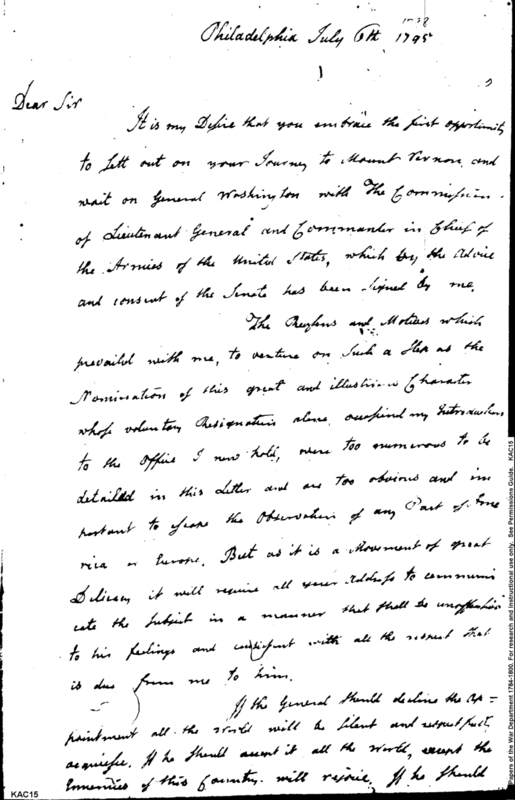 1798
Philadelphia July 6th 1795
Dear Sir
It is my Desire that you embrace the first opportunity
to sett out on your Journey to Mount Vernon, and
wait on General Washington with The Commission
of Lieutenant General and Commander in Chief of
the Armies of the United States, which by the Advice
and consent of the Senate has been signed by me.
The Reasons and Motives which
prevailed with me, to venture on Such a Step as the
Nomination of this great and illustrious Character
whose voluntary Resignation alone, occasioned my Introduction
to the Office I now hold, were too numerous to be
detailed in this Letter and are too obvious and im
portant to escape the Observation of any Part of Ame
rica or Europe. But as it is a Movement of great
Delicacy it will require all your Address to communi
cate the Subject in a manner that shall be unoffensive
to his feelings and consistent with all the respect that
is due from me to him.
If the General should decline the Ap=
pointment all the World will be silent and respectfully
acquiesce. If he should accept it all the World, except the
Ennemies of this Country will rejoice. If he should
KAC15
Papers of the War Department 1784-1800. For research and instructional use only. See Permissions Guide. KAC15